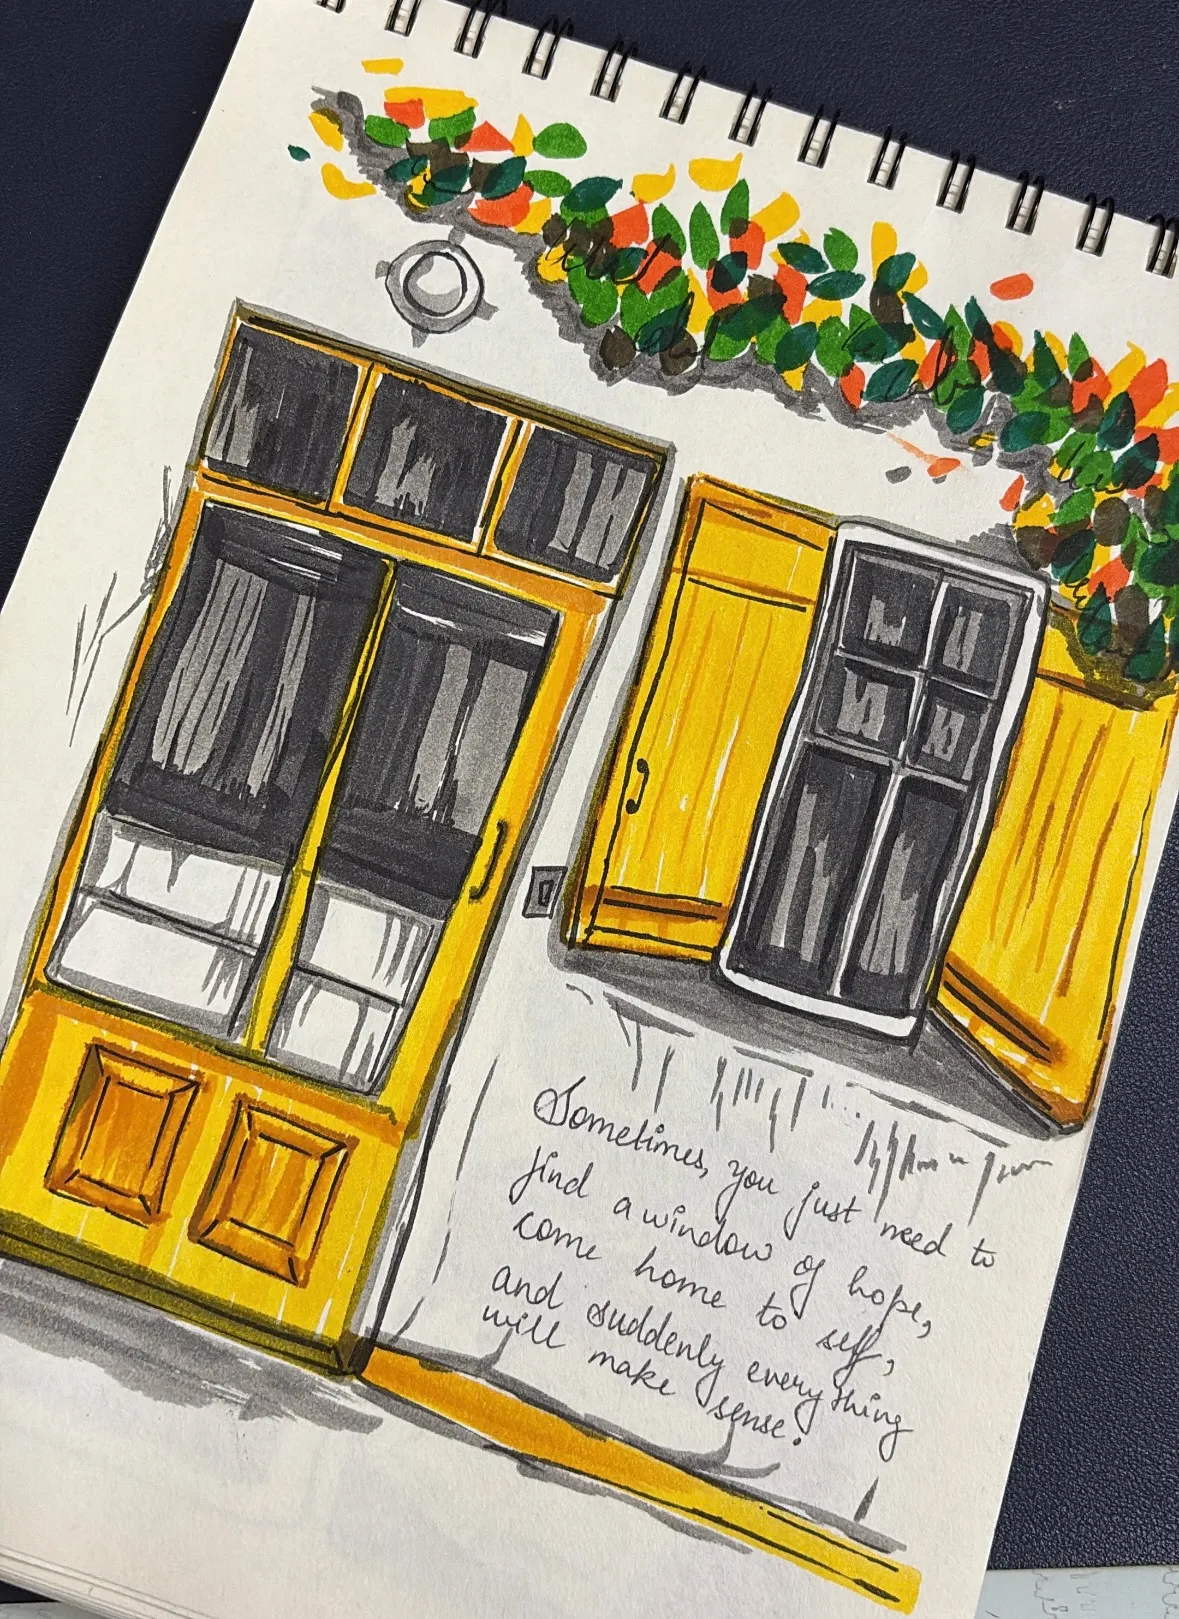 Sometimes, you just need to
find a window of hope,
come home to self,
and suddenly everything
will make sense.